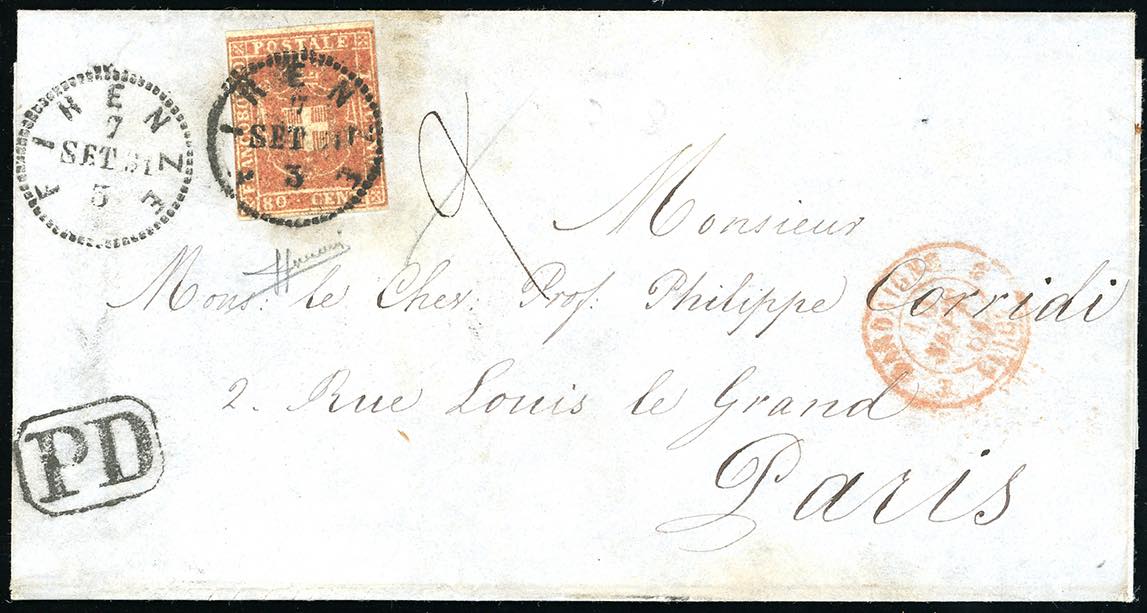 FIRENZE
7
SET 61
3
FRANCOBOLLO POSTALE
80 CENT
FIRENZE
7
SET
3
Monsieur
Mons. le Chev. Prof. Philippe Corridi
2. Rue Louis le Grand
Paris
PD